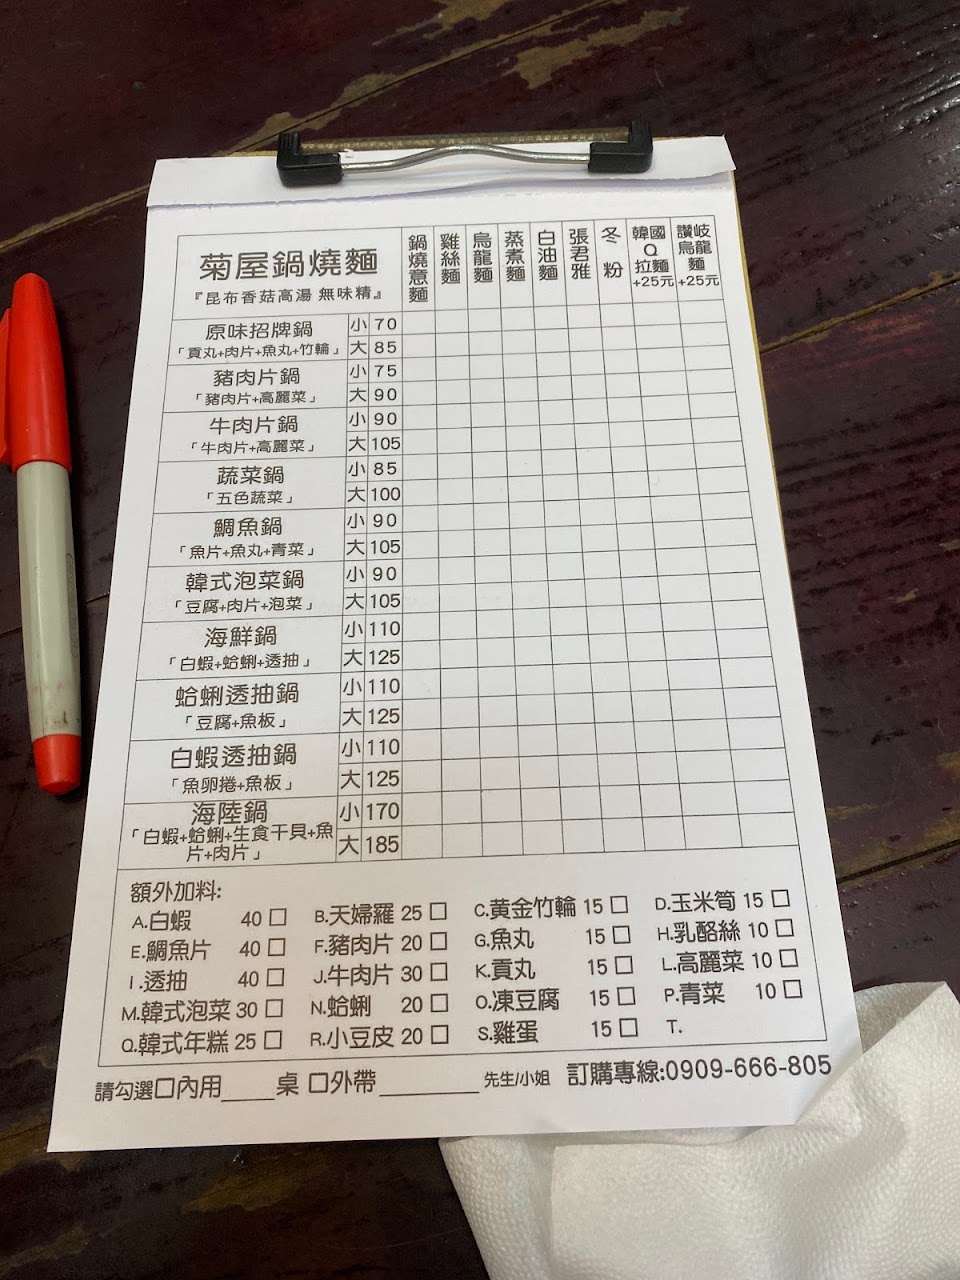 菊屋鍋燒麵
『昆布香菇高湯 無味精』
鍋燒意麵
雞絲麵
烏龍麵
蒸煮麵
白油麵
張君雅
冬粉
韓國Q拉麵+25元
讚岐烏龍麵+25元
原味招牌鍋 小 70
「貢丸+肉片+魚丸+竹輪」 大 85
豬肉片鍋 小 75
「豬肉片+高麗菜」 大 90
牛肉片鍋 小 90
「牛肉片+高麗菜」 大 105
蔬菜鍋 小 85
「五色蔬菜」 大 100
鯛魚鍋 小 90
「魚片+魚丸+青菜」 大 105
韓式泡菜鍋 小 90
「豆腐+肉片+泡菜」 大 105
海鮮鍋 小 110
「白蝦+蛤蜊+透抽」 大 125
蛤蜊透抽鍋 小 110
「豆腐+魚板」 大 125
白蝦透抽鍋 小 110
「魚卵捲+魚板」 大 125
海陸鍋 小 170
「白蝦+蛤蜊+生食干貝+魚
片+肉片」 大 185
額外加料:
A.白蝦 40 □ B.天婦羅 25 □ C.黃金竹輪 15 □ D.玉米筍 15 □
E.鯛魚片 40 □ F.豬肉片 20 □ G.魚丸 15 □ H.乳酪絲 10 □
I.透抽 40 □ J.牛肉片 30 □ K.貢丸 15 □ L.高麗菜 10 □
M.韓式泡菜 30 □ N.蛤蜊 20 □ O.凍豆腐 15 □ P.青菜 10 □
Q.韓式年糕 25 □ R.小豆皮 20 □ S.雞蛋 15 □ T.
請勾選□內用____桌 □外帶________ 先生/小姐 訂購專線:0909-666-805